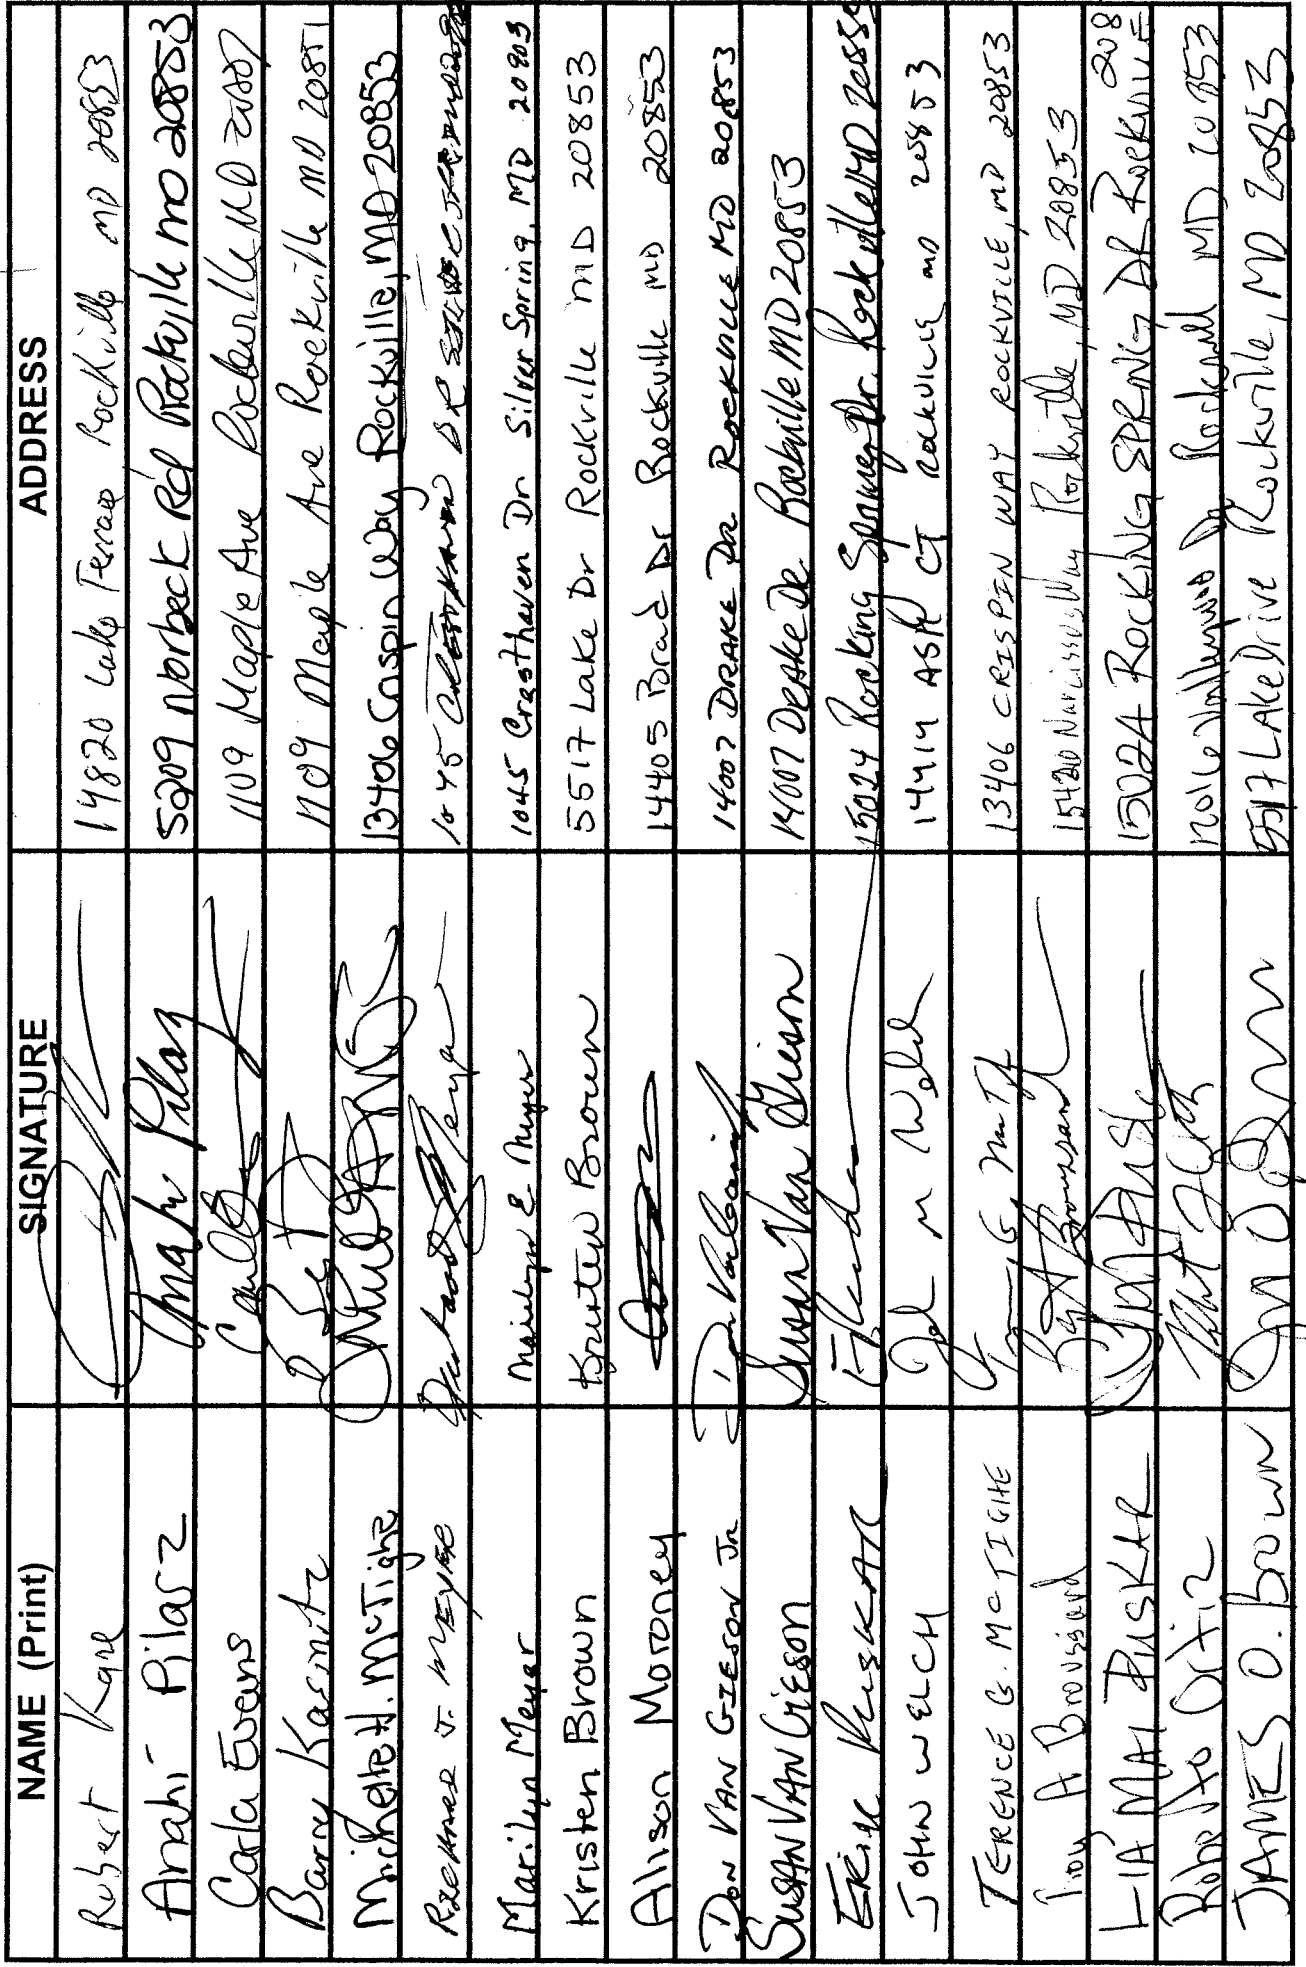 NAME (Print) SIGNATURE ADDRESS
Robert Kane 14820 Lake Terrace Rockville MD 20853
Anahi Pilarz Anahi Pilarz 5209 Norbeck Rd Rockville MD 20853
Carla Evans 1109 Maple Ave Rockville MD
Barry Kasnitz 1109 Maple Ave Rockville MD 20851
Michelle H. McTighe 13406 Crispin Way Rockville, MD 20853
Richard J. Meyer 1045 DR
Marilyn Meyer Marilyn E Meyer 1045 Cresthaven Dr Silver Spring, MD 20903
Kristen Brown Kristen Brown 5517 Lake Dr Rockville MD 20853
Alison Moroney 14405 Brad Dr Rockville MD 20853
DON VAN GIESON Jr 14007 DRAKE DR ROCKVILLE MD 20853
SUSAN VAN GIESON Susan Van Gieson 14007 DRAKE DR Rockville MD 20853
ERIK PUSKAR 15024 Rocking Spring Dr. Rockville MD
JOHN WELCH John M Welch 14414 ASH CT ROCKVILLE MD 20853
TERENCE G. McTIGHE 13406 CRISPIN WAY ROCKVILLE, MD 20853
Troy A Broussard 15420 Narcissus Way Rockville, MD 20853
LIA MAI PUSKAR ROCKING SPRING DR ROCKVILLE 208
Roberto Ortiz Dr Rockville MD 20853
JAMES O. Brown 5517 LAKE Drive Rockville, MD 20853